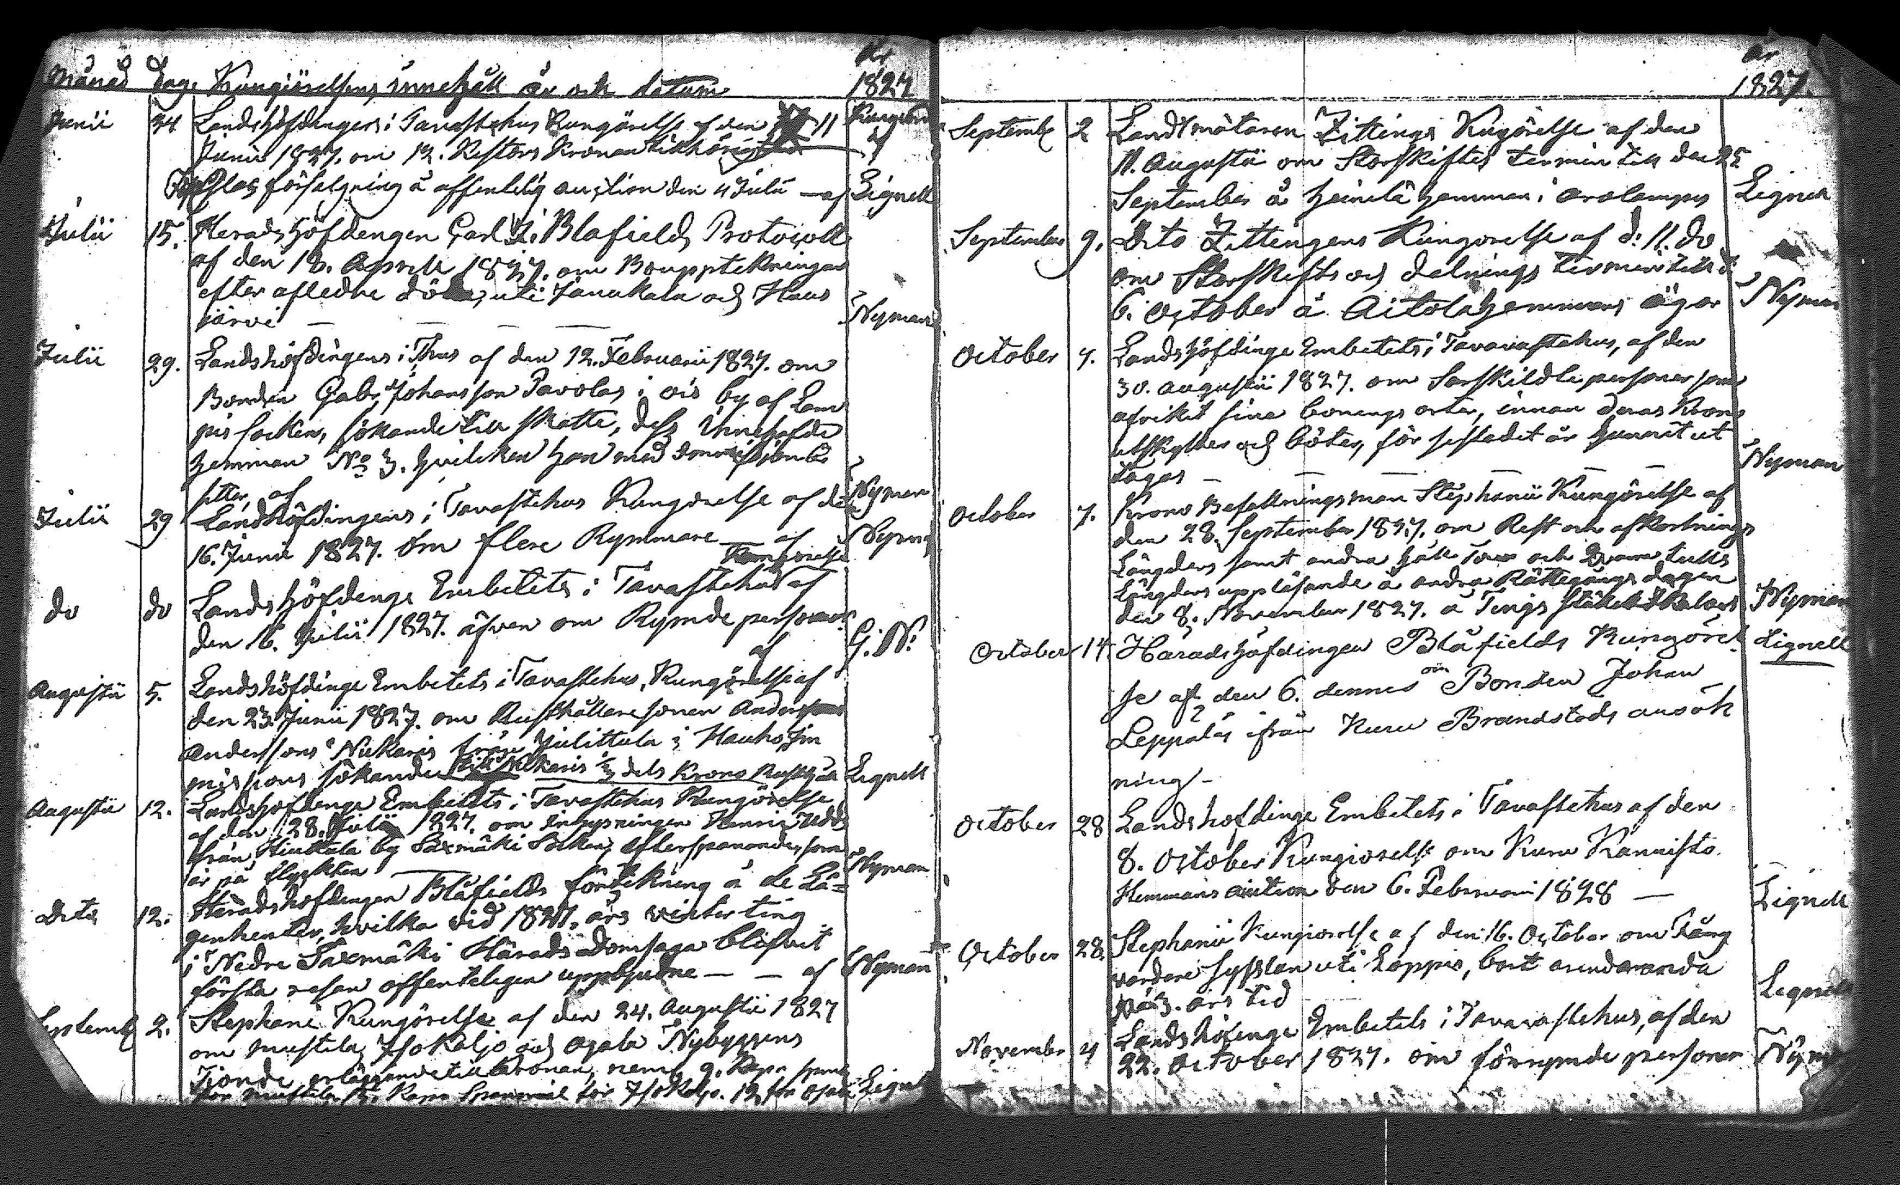 År
Månad Dag. Kungiörelsens innehåll år och datum 1827
Junii 24 Landshöfdingens i Tavastehus Kungörelse af den 11
Junii 1827. om 12. Kestors Kronan
försälgning å offentelig auction den 4 Julii — af Lignell
Julii 15. Herads Höfdengen Carl Blåfields Protocoll
af den 18. Aprill 1827. om Boupptekningar
efter afledne uti Janakala och Haus
järvi — — — — Nyman
Julii 29. Landshöfdingens i Thus af den 12. Februarii 1827. om
Bonden Gabr. Johansson Pavolas i ois by af Lam
pis socken, sökande till skatte, dess Innehafde
hemman No 3. hvilcken han med
sitter af Nyman
Julii 29 Landshöfdingens i Tavastehus Kungörelse af den
16. Junii 1827. om flere Rymmare — af Nyman
Kungörelse
do do Landshöfdinge Embetets i Tavastehus af
den 16. Julii 1827. äfven om Rymde personer
af G. N:
Augustii 5. Landshöfdinge Embetets i Tavastehus, Kungörelse af
den 23. Junii 1827. om Rusthållare sonen Anders
Anderssons Niekaris från Juttila i Hauho
sökande dels Krono Lignell
Augustii 12. Landshöfdinge Embetets i Tavastehus Kungörelse
af den 28. Julii 1827. om Henric
från Hiukala by Saxmäki Socken, efterspanande, som
är på flyckten Nyman
Dito 12. Häradshöfdingen Blåfields förtekning å de Lä-
genheter, hvilka vid 1827, års vinter ting
i Nedre Saxmäki Härads Domsaga blifvit
första resan offenteligen uppbjudne — — af Nyman
Septemb 2. Stephani Kungörelse af den 24. Augustii 1827
om Mustila, Isokaljo och Ojala Nybyggens
Tionde erläggande till Kronan, neml. 9. Kapn
för Mustila, 12. Kapn Spanmål för Isokaljo. 12 för Ojala Lignell
År
1827.
Septembr 2 Landtmätaren Zittings Kugörelse af den
11. Augustii om Storskiftes termin till den 25
September å Heinilä hemman i Lignell
September 9. Dito Zittingens Kungörelse af d: 11. do
om Storskifts och delnings termin till d:
6. October å Aitolahemmans ägor Nyman
October 7. Landshöfdinge Embetets i Tavavastehus, af den
30. augustii 1827. om Särskildte personer som
afvikit sina bonings orter, innan deras Krono
utskylder och böter, för sistledet år hunnit ut
tagas — — — — — Nyman
October 7. Krono Befallningsman Stephanii Kungörelse af
den 28. September 1827. om Rest och afkortnings
Längders samt andra
Längders uppläsande å andra Rättegångs dagen
den 8. November 1827. å Tings stället Nyman
October 14. Häradshöfdingen Blåfields Kungörel- Lignell
se af den 6. dennes om Bonden Johan
Leppälä ifrån Kuru Brandstods ansök
ning —
October 28 Landshöfdinge Embetets i Tavastehus af den
8. October Kungiörelse om Kuru Kännistö
Hemmans auction den 6. Februari 1828 — Lignell
October 28. Stephanii Kungiörelse af den 16. October om Fång
vårdare Sysslan uti Loppis, bort arenderande
på 3. års tid Lignell
November 4 Landshöfdinge Embetets i Tavavastehus, af den
22. October 1827. om förrymde personer Nyman